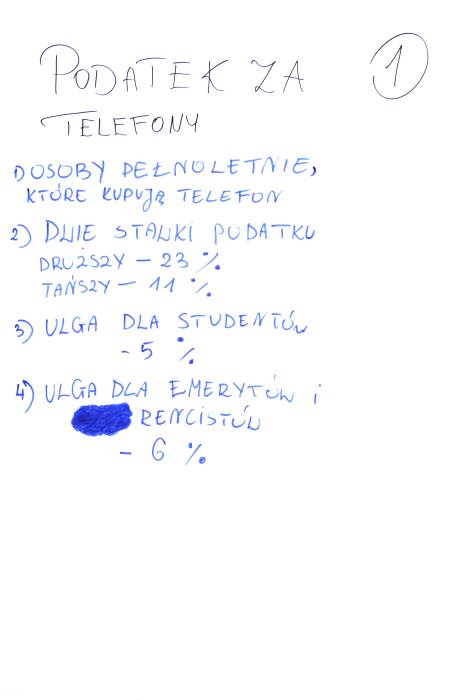 PODATEK ZA
1
TELEFONY
1) OSOBY PEŁNOLETNIE,
KTÓRE KUPUJĄ TELEFON
2) DWIE STAWKI PODATKU
DRUŻSZY – 23 %
TAŃSZY – 11 %
3) ULGA DLA STUDENTÓW
- 5 %
4) ULGA DLA EMERYTÓW i
RENCISTÓW
- 6 %